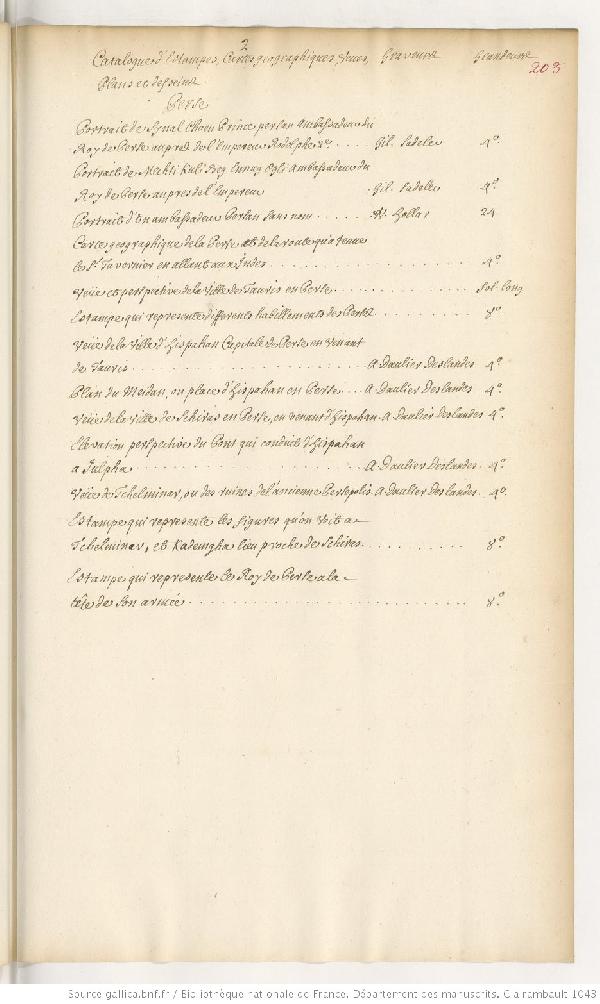 2
Catalogue d'Estampes, Cartes geographiques, Veues, Graveurs Grandeurs
203
Plans et desseins
Perse
Portrait de Synal Chaen Prince persan Ambassadeur du
Roy de Perse aupres de l'Empereur Rodolphe 2e. . . . . Gil. Sadeler 4°.
Portrait de Mechti Kuli Beg Ennug Ogli Ambassadeur du
Roy de Perse aupres de l'Empereur . Gil. Sadeler 4°.
Portrait d'Un ambassadeur Persan sans nom . . . . . . W. Hollar 24
Carte geographique de la Perse et de la route qu'a tenue
le Sr. Tavernier en allant aux Indes . . . . . . . . . . . . 4°.
Veüe et perspective de la Ville de Tauris en Perse . . . . . . . fol. long
Estampe qui represente differents habillements des Perses . . . . . . 8°
Veüe de la Ville d'Hispahan Capitale de Perse en venant
de Tauris . . . . . . . . . . A Daulier Deslandes 4°.
Plan du Meidan, ou place d'Hispahan en Perse . . . A Daulier Deslandes 4°.
Veüe de la Ville de Schiras en Perse, en venant d'Hispahan . A Daulier Deslandes 4°.
Elevation perspective du Pont qui conduit d'Hispahan
a Julpha . . . . . . . . . . A Daulier Deslandes . 4°.
Veüe de Tchelminar, ou des ruines de l'ancienne Persepolis A Daulier Deslandes . 4°.
Estampe qui represente les figures qu'on voit a
Tchelminar, et Kademgha lieu proche de Schiras . . . . . . . . 8°
Estampe qui represente le Roy de Perse a la
tête de son armée . . . . . . . . . . . . 8°
Source gallica.bnf.fr / Bibliothèque nationale de France. Département des manuscrits. Clairambault 1043